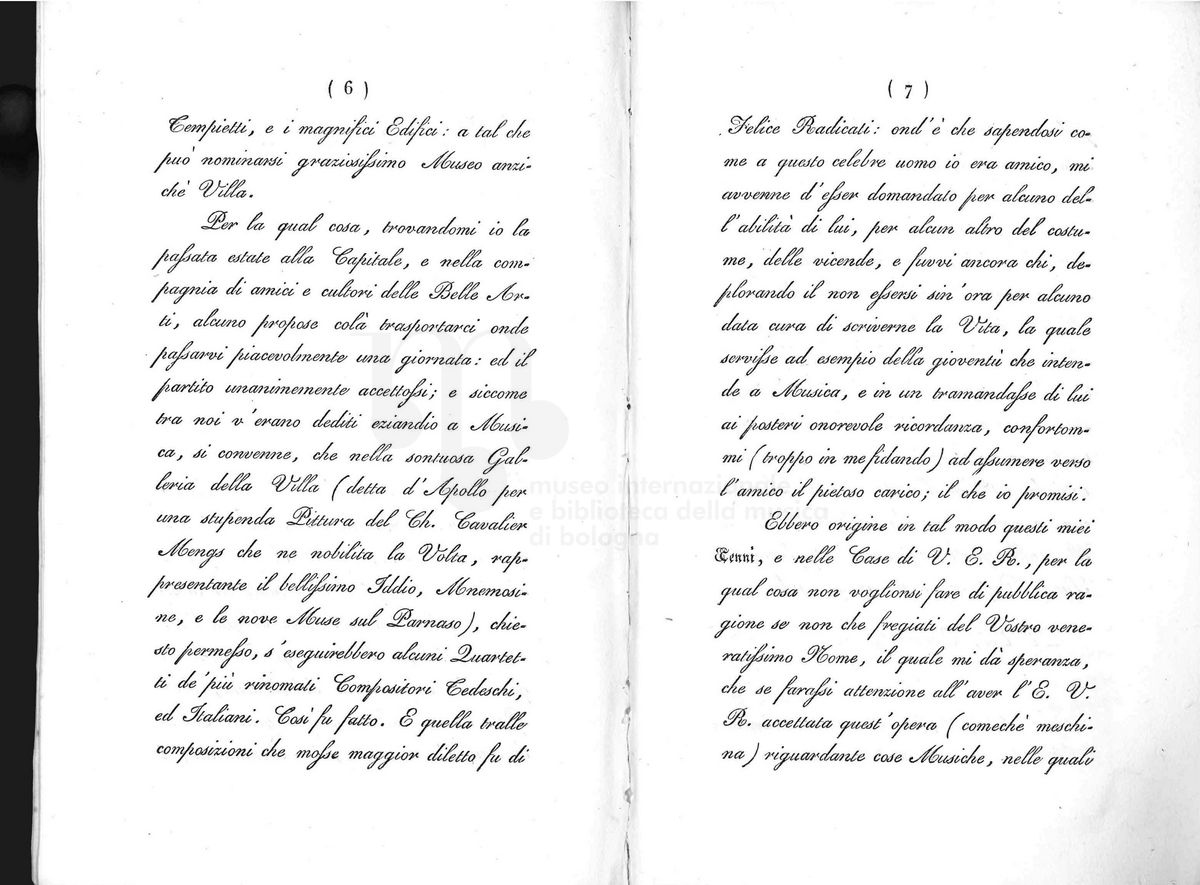 ( 6 )
Tempietti, e i magnifici Edifici: a tal che
può nominarsi graziosissimo Museo anzi-
chè Villa.
Per la qual cosa, trovandomi io la
passata estate alla Capitale, e nella com-
pagnia di amici e cultori delle Belle Ar-
ti, alcuno propose colà trasportarci onde
passarvi piacevolmente una giornata: ed il
partito unanimemente accettossi; e siccome
tra noi v'erano dediti eziandio a Musi-
ca, si convenne, che nella sontuosa Gal-
leria della Villa (detta d'Apollo per
una stupenda Pittura del Ch. Cavalier
Mengs che ne nobilita la Volta, rap-
presentante il bellissimo Iddio, Mnemosi-
ne, e le nove Muse sul Parnaso), chie-
sto permesso, s'eseguirebbero alcuni Quartet-
ti de' più rinomati Compositori Tedeschi,
ed Italiani. Così fu fatto. E quella tralle
composizioni che mosse maggior diletto fu di
( 7 )
Felice Radicati: ond'è che sapendosi co-
me a questo celebre uomo io era amico, mi
avvenne d'esser domandato per alcuno del-
l'abilità di lui, per alcun altro del costu-
me, delle vicende, e fuvvi ancora chi, de-
plorando il non essersi sin'ora per alcuno
data cura di scriverne la Vita, la quale
servisse ad esempio della gioventù che inten-
de a Musica, e in un tramandasse di lui
ai posteri onorevole ricordanza, confortom-
mi (troppo in me fidando) ad assumere verso
l'amico il pietoso carico; il che io promisi.
Ebbero origine in tal modo questi miei
Cenni, e nelle Case di V. E. R., per la
qual cosa non voglionsi fare di pubblica ra-
gione se non che fregiati del Vostro vene-
ratissimo Nome, il quale mi dà speranza,
che se farassi attenzione all'aver l'E. V.
R. accettata quest'opera (comechè meschi-
na) riguardante cose Musiche, nelle quali
museo internazionale
e biblioteca della musica
di bologna